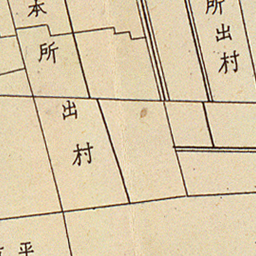 所出村
本所
出村
平